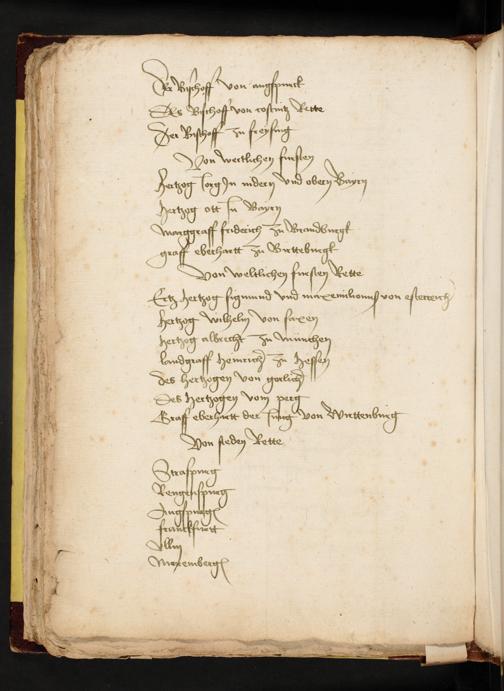 Der Bischoff von augspurck
Des Bischoff von costnitz Rette
Der Bischoff zu freysing
Von weltlichen fursten
Hertzog Jorg In nidern und obern Bayrn
hertzog ott In Bayrn
marggraff fridrich zu Brandburgk
graff eberhartt zu Wirtteburgk
Von weltlichen fursten Rette
Ertz hertzog sigmund und maxemilionus von osterreich
hertzog wilhelm von saxen
hertzog albrecht zu munchen
landgraff heinrich zu hessen
des hertzogen von
des hertzogen vom perg
Graff eberhartt der Jung von Wirttenburg
Von steden Rette
Straspurg
Regenspurg
Augspurgk
franckfurtt
Ulm
Nurembergk